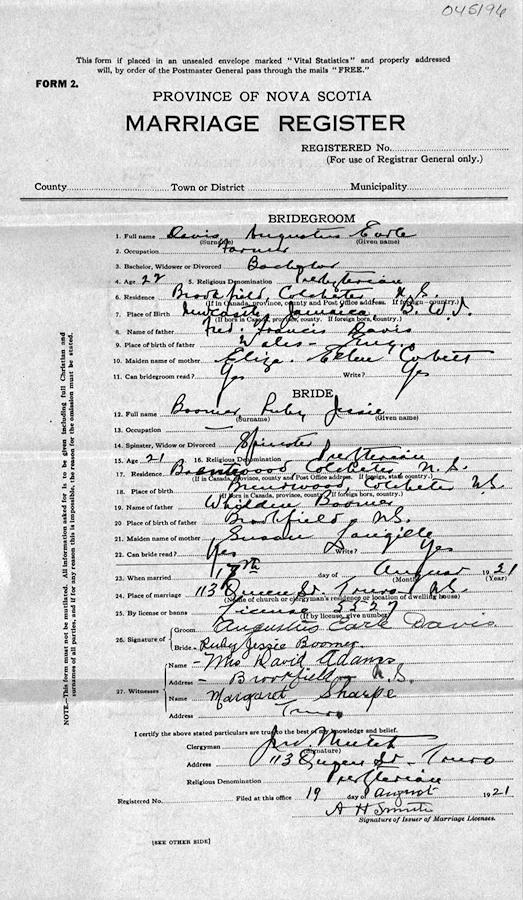 045196
This form if placed in an unsealed envelope marked "Vital Statistics" and properly addressed
will, by order of the Postmaster General pass through the mails "FREE."
FORM 2.
PROVINCE OF NOVA SCOTIA
MARRIAGE REGISTER
REGISTERED No.
(For use of Registrar General only.)
County Town or District Municipality
BRIDEGROOM
1. Full name Davis Augustus Earle
(Surname) (Given name)
2. Occupation Farmer
3. Bachelor, Widower or Divorced Bachelor
4. Age 22 5. Religious Denomination Presbyterian
6. Residence Brookfield Colchester N.S.
(If in Canada, province, county and Post Office address. If foreign, country.)
7. Place of Birth Newcastle Jamaica B.W.I.
(If born in Canada, province, county. If foreign born, country.)
8. Name of father Fred. Francis Davis
9. Place of birth of father Wales - Eng.
10. Maiden name of mother Eliza. Ellen Corbett
11. Can bridegroom read? Yes Write? Yes
BRIDE
12. Full name Boomer Ruby Jessie
(Surname) (Given name)
13. Occupation —
14. Spinster, Widow or Divorced Spinster
15. Age 21 16. Religious Denomination Presbyterian
17. Residence Brentwood Colchester N.S.
(If in Canada, province, county and Post Office address. If foreign, state country.)
18. Place of birth Brentwood, Colchester N.S.
(If born in Canada, province, county. If foreign born, country.)
19. Name of father Whidden Boomer
20. Place of birth of father Brookfield, N.S.
21. Maiden name of mother Susan Langille
22. Can bride read? Yes Write? Yes
23. When married 18th day of August 1921
(Month) (Year)
24. Place of marriage 113 Queen St. Truro N.S.
(Name of church or clergyman's residence or location of dwelling house)
25. By license or banns License 5527
(If by license, give number)
26. Signature of Groom Augustus Earle Davis
Bride Ruby Jessie Boomer
27. Witnesses Name Mrs David Adams
Address Brookfield N.S.
Name Margaret Sharpe
Address Truro
I certify the above stated particulars are true to the best of my knowledge and belief.
Clergyman Jno. Mutch
(Signature)
Address 113 Queen St. Truro
Religious Denomination Presbyterian
Registered No. Filed at this office 19 day of August 1921
A H Smith
Signature of Issuer of Marriage Licenses.
[SEE OTHER SIDE]
NOTE—This form must not be mutilated. All information asked for is to be given including full Christian and
surnames of all parties, and if for any reason this is impossible, the reason for the omission must be stated.